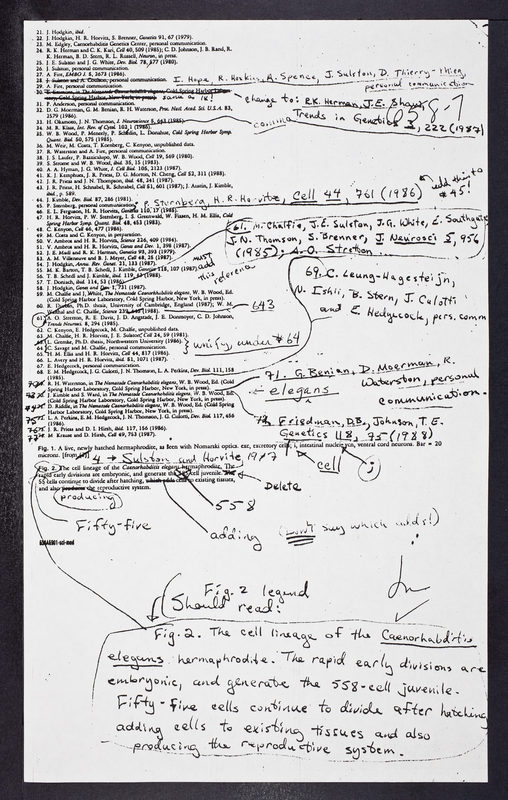 21. J. Hodgkin, ibid.
22. J. Hodgkin, H. R. Horvitz, S. Brenner, Genetics 91, 67 (1979).
23. M. Edgley, Caenorhabditis Genetics Center, personal communication.
24. R. K. Herman and C. K. Kari, Cell 40, 509 (1985); C. D. Johnson, J. B. Rand, R.
K. Herman, B. D. Stern, R. L. Russell, Neuron, in press.
25. J. E. Sulston and J. G. White, Dev. Biol. 78, 577 (1980).
26. J. Sulston, personal communication.
27. A. Fire, EMBO J. 5, 2673 (1986).
28. J. Sulston and A. Coulson, personal communication. I. Hope, R. Hoskin, A. Spence, J. Sulston, D. Thierry-Mieg,
personal communication
29. A. Fire, personal communication.
same as 18!
change to: R.K. Herman, J.E. Shaw,
Trends in Genetics 3, 222 (1987)
comma
31. P. Anderson, personal communication.
32. D. G. Moerman, G. M. Benian, R. H. Waterston, Proc. Natl. Acad. Sci. U.S.A. 83,
2579 (1986).
33. H. Okamoto, J. N. Thomson, J. Neuroscience 5, 643 (1985).
34. M. R. Klass, Int. Rev. of Cytol. 102, 1 (1986).
35. W. B. Wood, P. Meneely, P. Schedin, L. Donahue, Cold Spring Harbor Symp.
Quant. Biol. 50, 575 (1985).
36. M. Weir, M. Costa, T. Kornberg, C. Kenyon, unpublished data.
37. R. Waterston and A. Fire, personal communication.
38. J. S. Laufer, P. Bazzicalupo, W. B. Wood, Cell 19, 569 (1980).
39. S. Strome and W. B. Wood, ibid. 35, 15 (1983).
40. A. A. Hyman, J. G. White, J. Cell Biol. 105, 2123 (1987).
41. K. J. Kemphues, J. R. Priess, D. G. Morton, N. Cheng, Cell 52, 311 (1988).
42. J. R. Priess and J. N. Thompson, ibid. 48, 241 (1987).
43. J. R. Priess, H. Schnabel, R. Schnabel, Cell 51, 601 (1987); J. Austin, J. Kimble,
ibid., p. 589.
44. J. Kimble, Dev. Biol. 87, 286 (1981).
45. P. Sternberg, personal communication. P. Sternberg, H. R. Horvitz, Cell 44, 761 (1986)
add this to #45!
46. E. L. Ferguson, H. R. Horvitz, Genetics 110, 17 (1985).
47. H. R. Horvitz, P. W. Sternberg, I. S. Greenwald, W. Fixsen, H. M. Ellis, Cold
Spring Harbor Symp. Quant. Biol. 48, 453 (1983).
48. C. Kenyon, Cell 46, 477 (1986).
49. M. Costa and C. Kenyon, in preparation.
50. V. Ambros and H. R. Horvitz, Science 226, 409 (1984).
51. V. Ambros and H. R. Horvitz, Gene and Dev. 1, 398 (1987).
52. J. E. Madl and R. K. Herman, Genetics 93, 393 (1979).
53. A. M. Villeneuve and B. J. Meyer, Cell 48, 25 (1987).
54. J. Hodgkin, Annu. Rev. Genet. 21, 133 (1987).
55. M. K. Barton, T. B. Schedl, J. Kimble, Genetics 115, 107 (1987).
56. T. B. Schedl and J. Kimble, ibid. 119, 43 (1988).
57. T. Doniach, ibid. 114, 53 (1986).
58. J. Hodgkin, Gene and Dev. 1, 731 (1987).
must add this reference
59. M. Chalfie and J. White, The Nematode Caenorhabditis elegans, W. B. Wood, Ed.
(Cold Spring Harbor Laboratory, Cold Spring Harbor, New York, in press).
60. R. Durbin, Ph.D. thesis, University of Cambridge, England (1987); W. M.
Walthall and C. Chalfie, Science 239, 643 (1988).
643
61. A. O. Stretton, R. E. Davis, J. D. Angstadt, J. E. Donmoyer, C. D. Johnson,
Trends Neurosci. 8, 294 (1985).
61. M. Chalfie, J.E. Sulston, J.G. White, E. Southgate,
J.N. Thomson, S. Brenner, J. Neurosci 5, 956
(1985); A.O. Stretton
62. C. Kenyon, E. Hedgecock, M. Chalfie, unpublished data.
63. M. Chalfie, H. R. Horvitz, J. E. Sulston, Cell 24, 59 (1981).
64. L. Gremke, Ph.D. thesis, Northwestern University (1986).
C. Savage and M. Chalfie, personal communication.
unify, under #64
65. H. M. Ellis and H. R. Horvitz, Cell 44, 817 (1986).
66. L. Avery and H. R. Horvitz, ibid. 51, 1071 (1987).
67. E. Hedgecock, personal communication.
68. E. M. Hedgecock, J. G. Culotti, J. N. Thomson, L. A. Perkins, Dev. Biol. 111, 158
(1985).
69. C. Leung-Hagesteijn,
N. Ishii, B. Stern, J. Culotti
and E. Hedgecock, pers. comm
70. R. H. Waterston, in The Nematode Caenorhabditis elegans, W. B. Wood, Ed. (Cold
Spring Harbor Laboratory, Cold Spring Harbor, New York, in press).
J. Kimble and S. Ward, in The Nematode Caenorhabditis elegans, W. B. Wood, Ed.
(Cold Spring Harbor Laboratory, Cold Spring Harbor, New York, in press).
D. Riddle, in The Nematode Caenorhabditis elegans, W. B. Wood, Ed. (Cold Spring
Harbor Laboratory, Cold Spring Harbor, New York, in press).
elegans
L. A. Perkins, E. M. Hedgecock, J. N. Thomson, J. G. Culotti, Dev. Biol. 117, 456
(1986).
J. R. Priess and D. I. Hirsh, ibid. 117, 156 (1986).
M. Krause and D. Hirsh, Cell 49, 753 (1987).
71. G. Benian, D. Moerman, R.
Waterston, personal
communication.
73. Friedman, D.B., Johnson, T.E.
Genetics 118, 75 (1988)
Fig. 1. A live, newly hatched hermaphrodite, as seen with Nomarski optics. exc, excretory cell; i, intestinal nucleus; vn, ventral cord neurons. Bar = 20
microns. [from
4 → Sulston and Horvitz 1977
cell
Fig. 2. The cell lineage of the Caenorhabditis elegans hermaphrodite. The
rapid early divisions are embryonic, and generate the 558 cell juvenile.
55 cells continue to divide after hatching, which adds cells to existing tissues,
and also produces the reproductive system.
Delete
producing
558
Fifty-five
adding
(don't say which adds!)
Fig. 2 legend
Should read:
Fig. 2. The cell lineage of the Caenorhabditis
elegans hermaphrodite. The rapid early divisions are
embryonic, and generate the 558-cell juvenile.
Fifty-five cells continue to divide after hatching,
adding cells to existing tissues and also
producing the reproductive system.